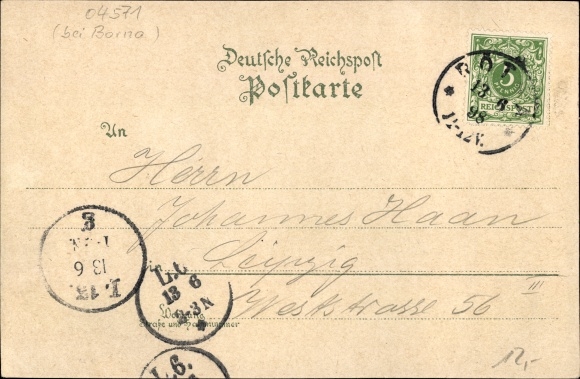 04571
(bei Borna)
Deutsche Reichspost
Postkarte
5
PFENNIG
REICHSPOST
RÖT
13 6
98
12-1N.
An
Herrn
Johannes Haan
Leipzig
Weststrasse 56 III
Wohnung
Straße und Hausnummer
L.13.
13 6
1-2N
E
L.6
13 6
2-3N
L.6.
12,-